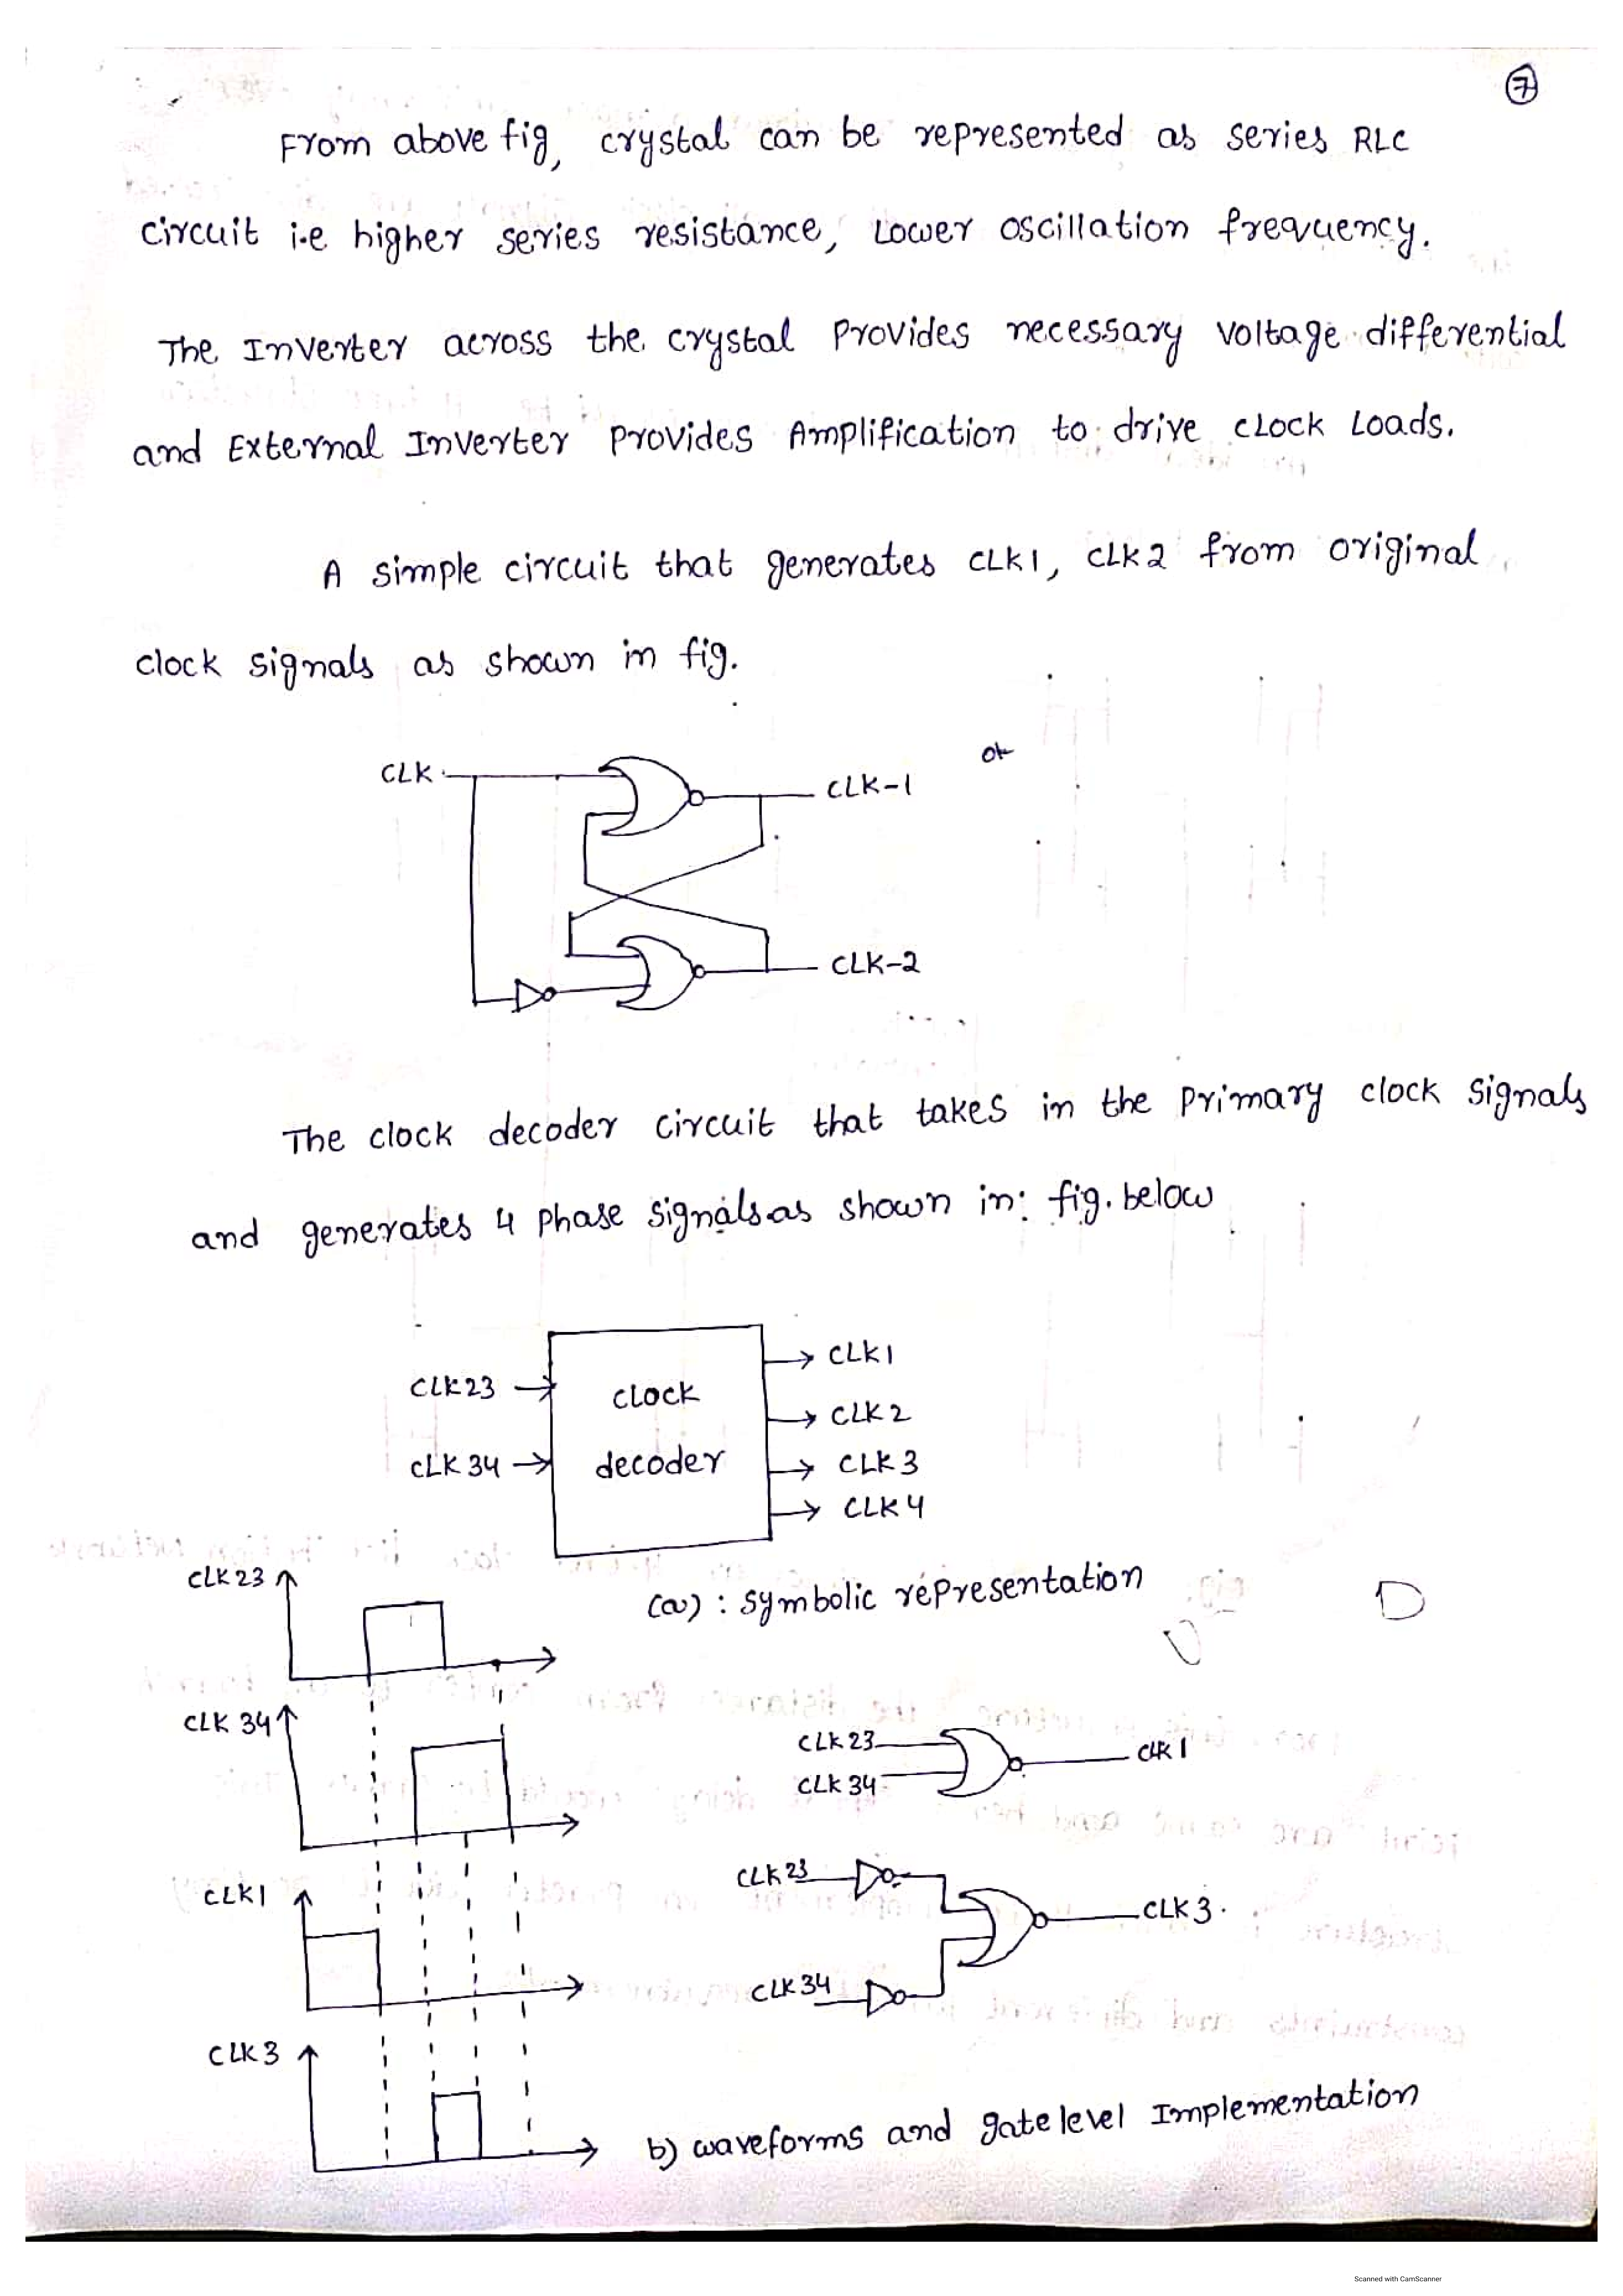 7
From above fig, crystal can be represented as series RLC
circuit i.e higher series resistance, Lower oscillation frequency.
The Inverter across the crystal Provides necessary voltage differential
and External Inverter Provides Amplification to drive clock Loads.
A simple circuit that generates CLK1, CLK2 from original
clock signals as shown in fig.
CLK
CLK-1
CLK-2
The clock decoder circuit that takes in the Primary clock signals
and generates 4 phase signals as shown in: fig. below
CLK23
CLK 34
clock
decoder
CLK1
CLK 2
CLK 3
CLK 4
(a) : symbolic representation
CLK 23
CLK 34
CLK 23
CLK 34
CLK 1
CLK1
CLK 23
CLK 34
CLK 3.
CLK 3
b) waveforms and gate level Implementation
Scanned with CamScanner